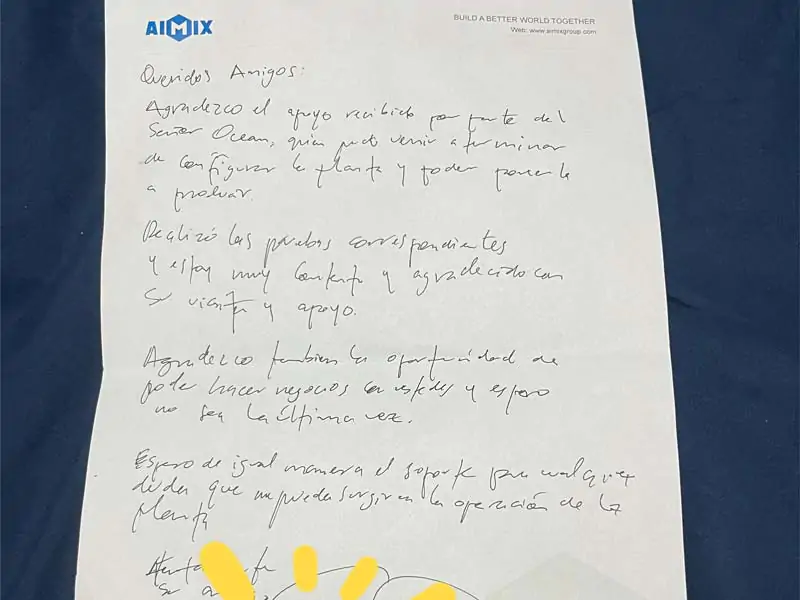 AIMIX
BUILD A BETTER WORLD TOGETHER
Web: www.aimixgroup.com
Queridos Amigos:
Agradezco el apoyo recibido por parte del
Señor Ocean, quien pudo venir a terminar
de configurar la planta y poder ponerla
a probar.
Realizó las pruebas correspondientes
y estoy muy contento y agradecido con
su visita y apoyo.
Agradezco tambien la oportunidad de
poder hacer negocios con ustedes y espero
no sea la última vez.
Espero de igual manera el soporte por cualquier
duda que me pueda surgir en la operación de la
planta
Su a